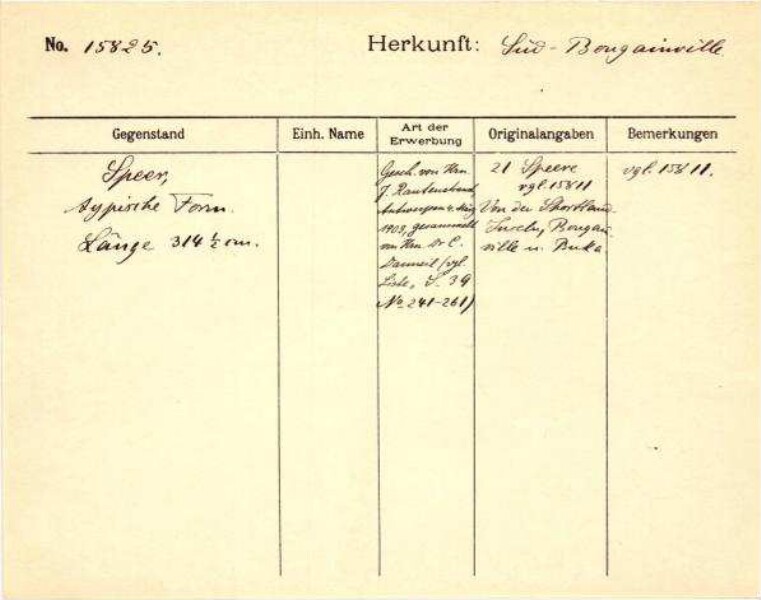 No. 15825.
Herkunft: Süd-Bougainville
Gegenstand
Einh. Name
Art der
Erwerbung
Originalangaben
Bemerkungen
Speer,
typische Form.
Länge 314 ½ cm.
Gesch. von Hrn
J. Rautenstrauch
Antwerpen 4. März
1903, gesammelt
von Hrn Dr C.
Danneil (vgl.
Liste, S. 39
No 241-261)
21 Speere
vgl. 15811
Von der Shortland-
Inseln, Bougain
ville u. Buka.
vgl. 15811.